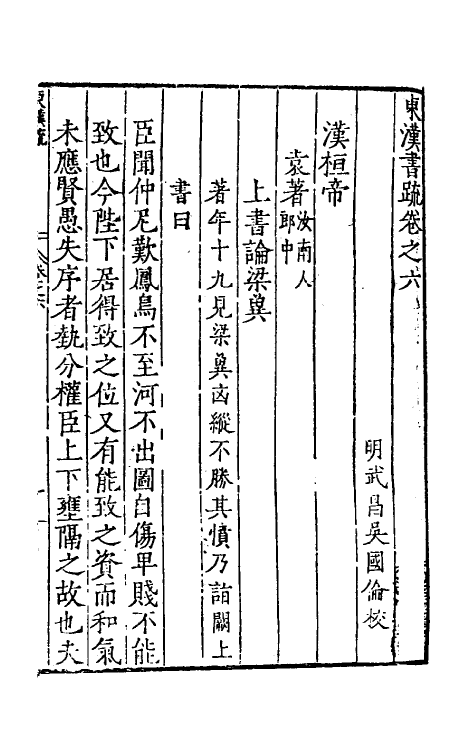 東漢書疏卷之六
明武昌吳國倫校
漢桓帝
袁著汝南人
郎中
上書論梁冀
著年十九見梁冀凶縱不勝其憤乃詣闕上
書曰
臣聞仲尼歎鳳鳥不至河不出圖自傷卑賤不能
致也今陛下居得致之位又有能致之資而和氣
未應賢愚失序者埶分權臣上下壅隔之故也夫